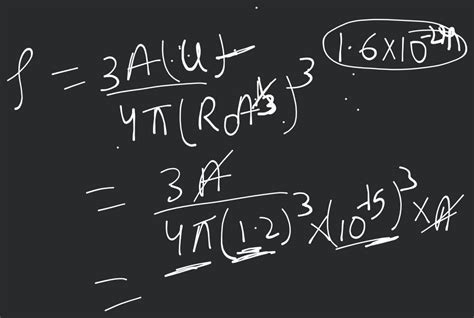 ρ = 3A(u) / 4π(R₀A^1/3)^3
1.6×10^-27
= 3A / 4π(1.2)^3×(10^-15)^3×A
=